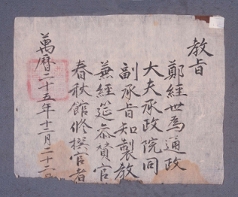 教旨
鄭經世為通政
大夫承政院同
副承旨知製教
兼經筵參贊官
春秋館修撰官者
萬曆二十五年十二月二十二日